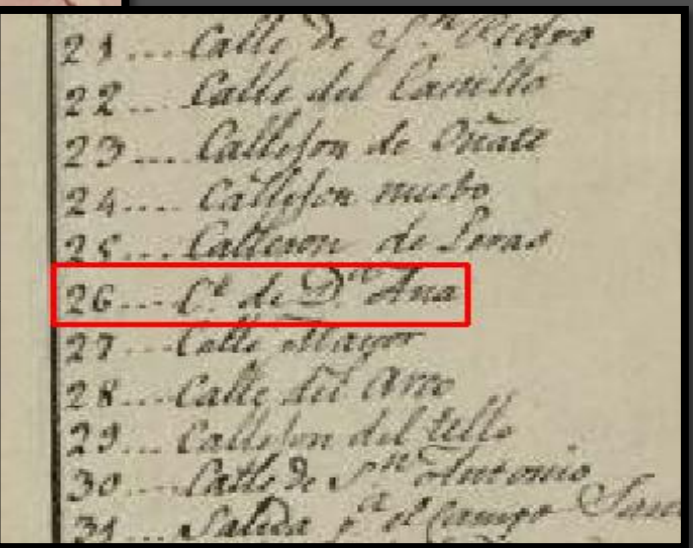 21.... Calle de Sn. Pedro
22.... Calle del Castillo
23.... Callejon de Oñate
24.... Callejon nuebo
25.... Callexon de
26.... Ce. de Da. Ana
27.... Calle Mayor
28.... Calle del Arco
29.... Callejon del tello
30.... Calle de Sn Antonio
31.... Salida pa. el Campo